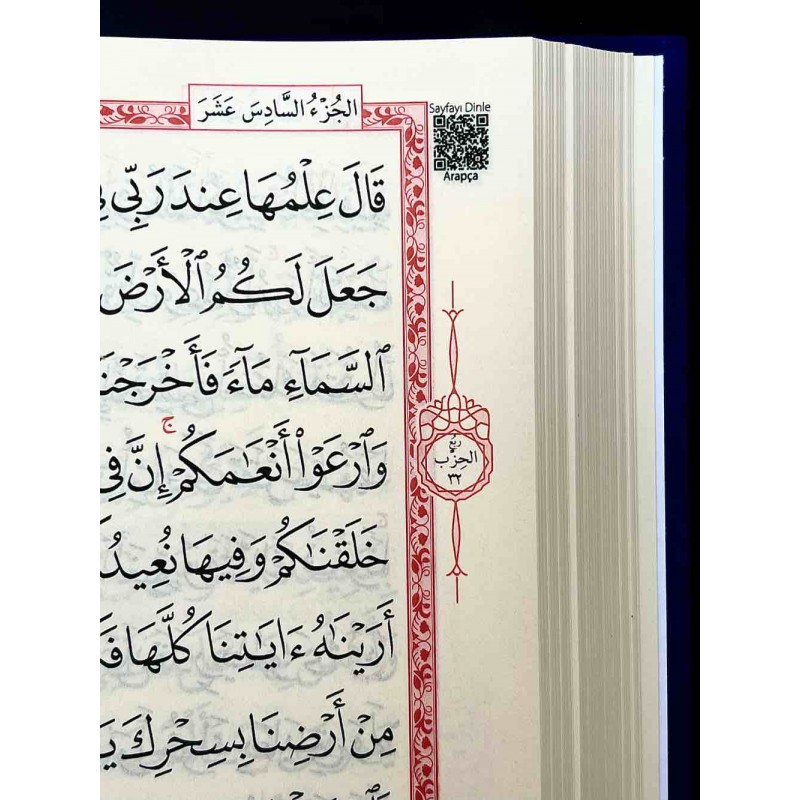 الجُزْءُ السَّادِسَ عَشَرَ
Sayfayı Dinle
Arapça
قَالَ عِلْمُهَا عِندَ رَبِّي فِي
جَعَلَ لَكُمُ ٱلْأَرْضَ
ٱلسَّمَآءِ مَآءً فَأَخْرَجْنَا
وَٱرْعَوْا۟ أَنْعَٰمَكُمْ ۚ إِنَّ فِي
رُبْعُ
الحِزْب
٣٢
خَلَقْنَٰكُمْ وَفِيهَا نُعِيدُ
أَرَيْنَٰهُ ءَايَٰتِنَا كُلَّهَا فَ
مِنْ أَرْضِنَا بِسِحْرِكَ يَ